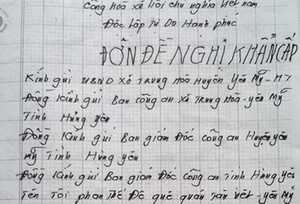 Cộng hoà xã hội chủ nghĩa việt nam
Độc lập Tự Do Hạnh phúc
ĐƠN ĐỀ NGHỊ KHẨN CẤP
Kính gửi UBND Xã Trung Hoà Huyện Yên Mỹ-HY
Đồng Kính gửi Ban công an Xã Trung Hoà-yên Mỹ
Tỉnh Hưng yên
Đồng Kính gửi Ban giám Đốc công an Huyện yên
mỹ Tỉnh Hưng yên
Đồng Kính gửi Ban giám Đốc công an Tỉnh Hưng yên
Tên Tôi phan Thế Đề quê quán yên Mỹ